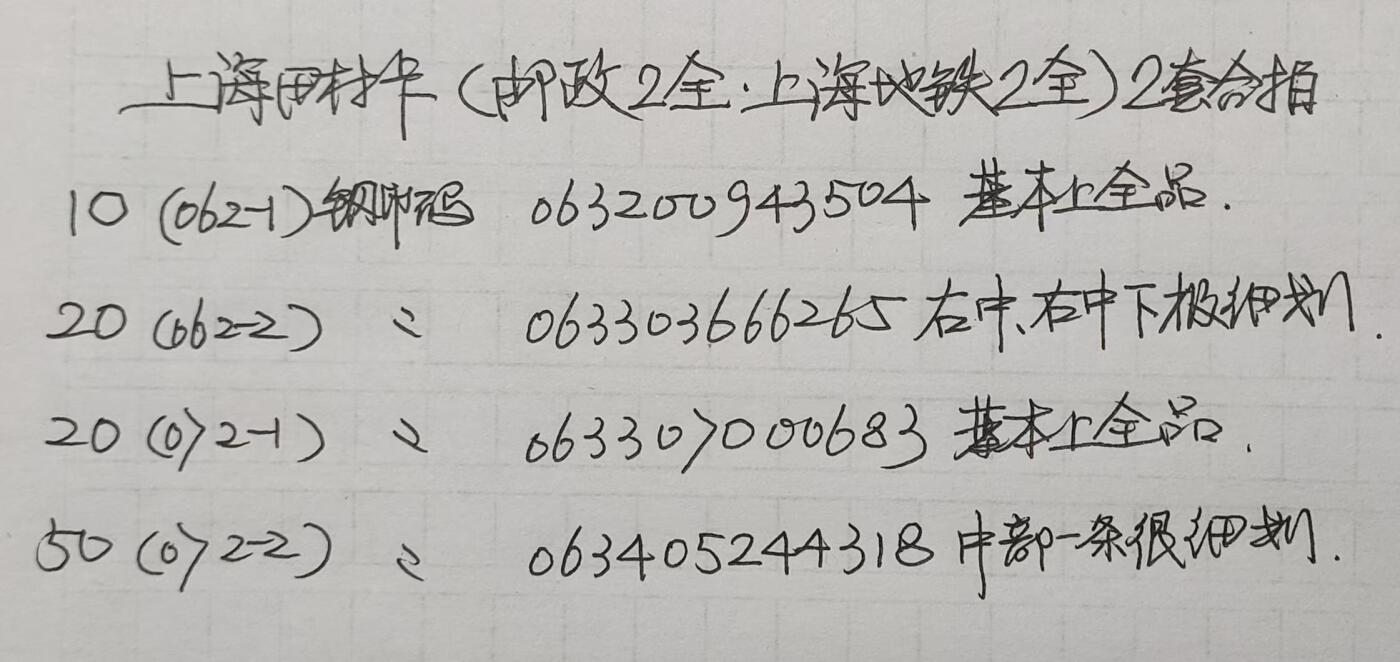 上海田村卡(邮政2全·上海地铁2全)2套合拍
10(062-1)钢印码 063200943504 基本上全品.
20(062-2) 〃 063303666265 右中、右中下极细划.
20(072-1) 〃 063307000683 基本上全品.
50(072-2) 〃 063405244318 中部一条很细划.